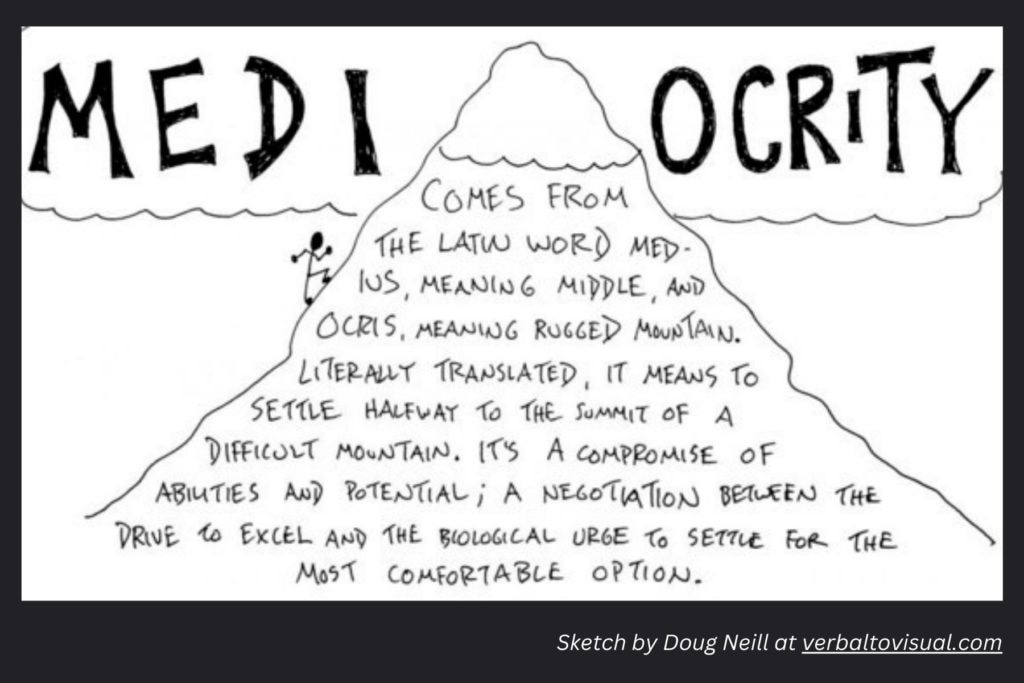 MEDIOCRITY
COMES FROM
THE LATIN WORD MED-
IUS, MEANING MIDDLE, AND
OCRIS, MEANING RUGGED MOUNTAIN.
LITERALLY TRANSLATED, IT MEANS TO
SETTLE HALFWAY TO THE SUMMIT OF A
DIFFICULT MOUNTAIN. IT'S A COMPROMISE OF
ABILITIES AND POTENTIAL; A NEGOTIATION BETWEEN THE
DRIVE to EXCEL AND THE BIOLOGICAL URGE TO SETTLE FOR THE
MOST COMFORTABLE OPTION.
Sketch by Doug Neill at verbaltovisual.com